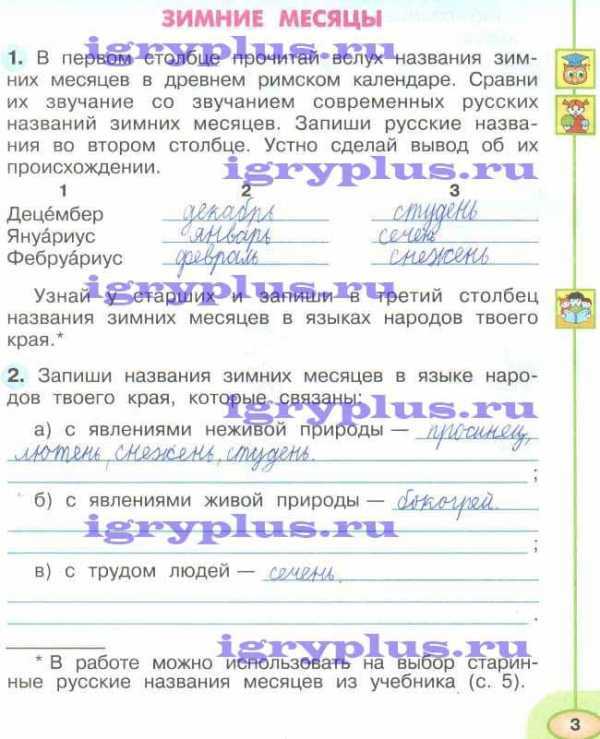 ЗИМНИЕ МЕСЯЦЫ
igryplus.ru
1. В первом столбце прочитай вслух названия зим-
них месяцев в древнем римском календаре. Сравни
их звучание со звучанием современных русских
названий зимних месяцев. Запиши русские назва-
ния во втором столбце. Устно сделай вывод об их
происхождении.
igryplus.ru
1 2 3
Деце́мбер декабрь студень
Януа́риус январь сечень
Фебруа́риус февраль снежень
igryplus.ru
Узнай у старших и запиши в третий столбец
названия зимних месяцев в языках народов твоего
края.*
2. Запиши названия зимних месяцев в языке наро-
дов твоего края, которые связаны:
igryplus.ru
а) с явлениями неживой природы — просинец,
лютень, снежень, студень.
;
б) с явлениями живой природы — бокогрей.
igryplus.ru
;
в) с трудом людей — сечень.
.
igryplus.ru
* В работе можно использовать на выбор старин-
ные русские названия месяцев из учебника (с. 5).
3